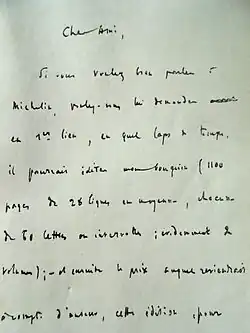 Cher Ami,
Si vous voulez bien parler à
Michelin, voulez-vous lui demander
en 1er lieu, en quel laps de temps,
il pourrait éditer mon bouquin (1100
pages de 28 lignes en moyenne, chacune
de 50 lettres ou intervalles ; évidemment 2
volumes) ; – et ensuite le prix auquel reviendrait
à compte d'auteur, cette édition, pour